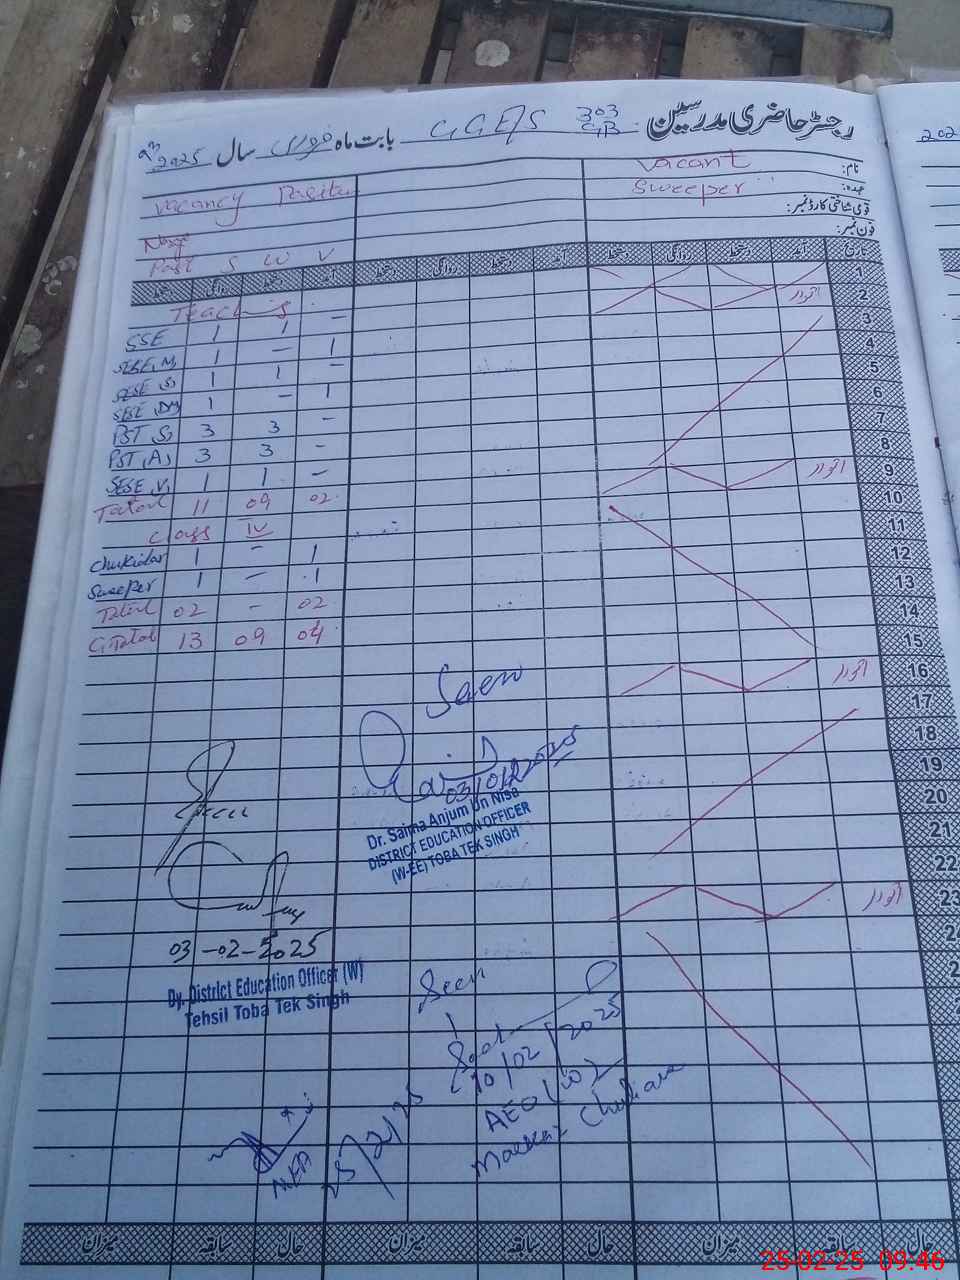 رجسٹر حاضری مدرسین GGE/S 303 GB بابت ماہ فروری سال 2025
نام: Vacant
عہدہ: Sweeper
قومی شناختی کارڈ نمبر:
فون نمبر:
Vacancy
Post S W V
تاریخ آمد دستخط روانگی دستخط آمد دستخط روانگی دستخط آمد دستخط روانگی دستخط
Teaching
SSE 1 1 –
SESE, M, 1 – 1
SESE, S, 1 1 –
SESE, DM 1 – 1
PST, S, 3 3 –
PST, A, 3 3 –
SESE, V, 1 1 –
Total 11 09 02
Class IV
Chukidar 1 – 1
Sweeper 1 – 1
Total 02 – 02
G.Total 13 09 04
1
2 اتوار
3
4
5
6
7
8
9 اتوار
10
11
12
13
14
15
16 اتوار
17
18
19
20
21
22
23 اتوار
24
Seen
03/02/2025
Dr. Saima Anjum Un Nisa
DISTRICT EDUCATION OFFICER
(W-EE) TOBA TEK SINGH
Seen
03-02-2025
Dy. District Education Officer (W)
Tehsil Toba Tek Singh
Seen
10/02/2025
AEO (W)
Markaz
MEA
25/2/25
میزان سابقہ حال میزان سابقہ حال میزان سابقہ حال
25-02-25 09:46